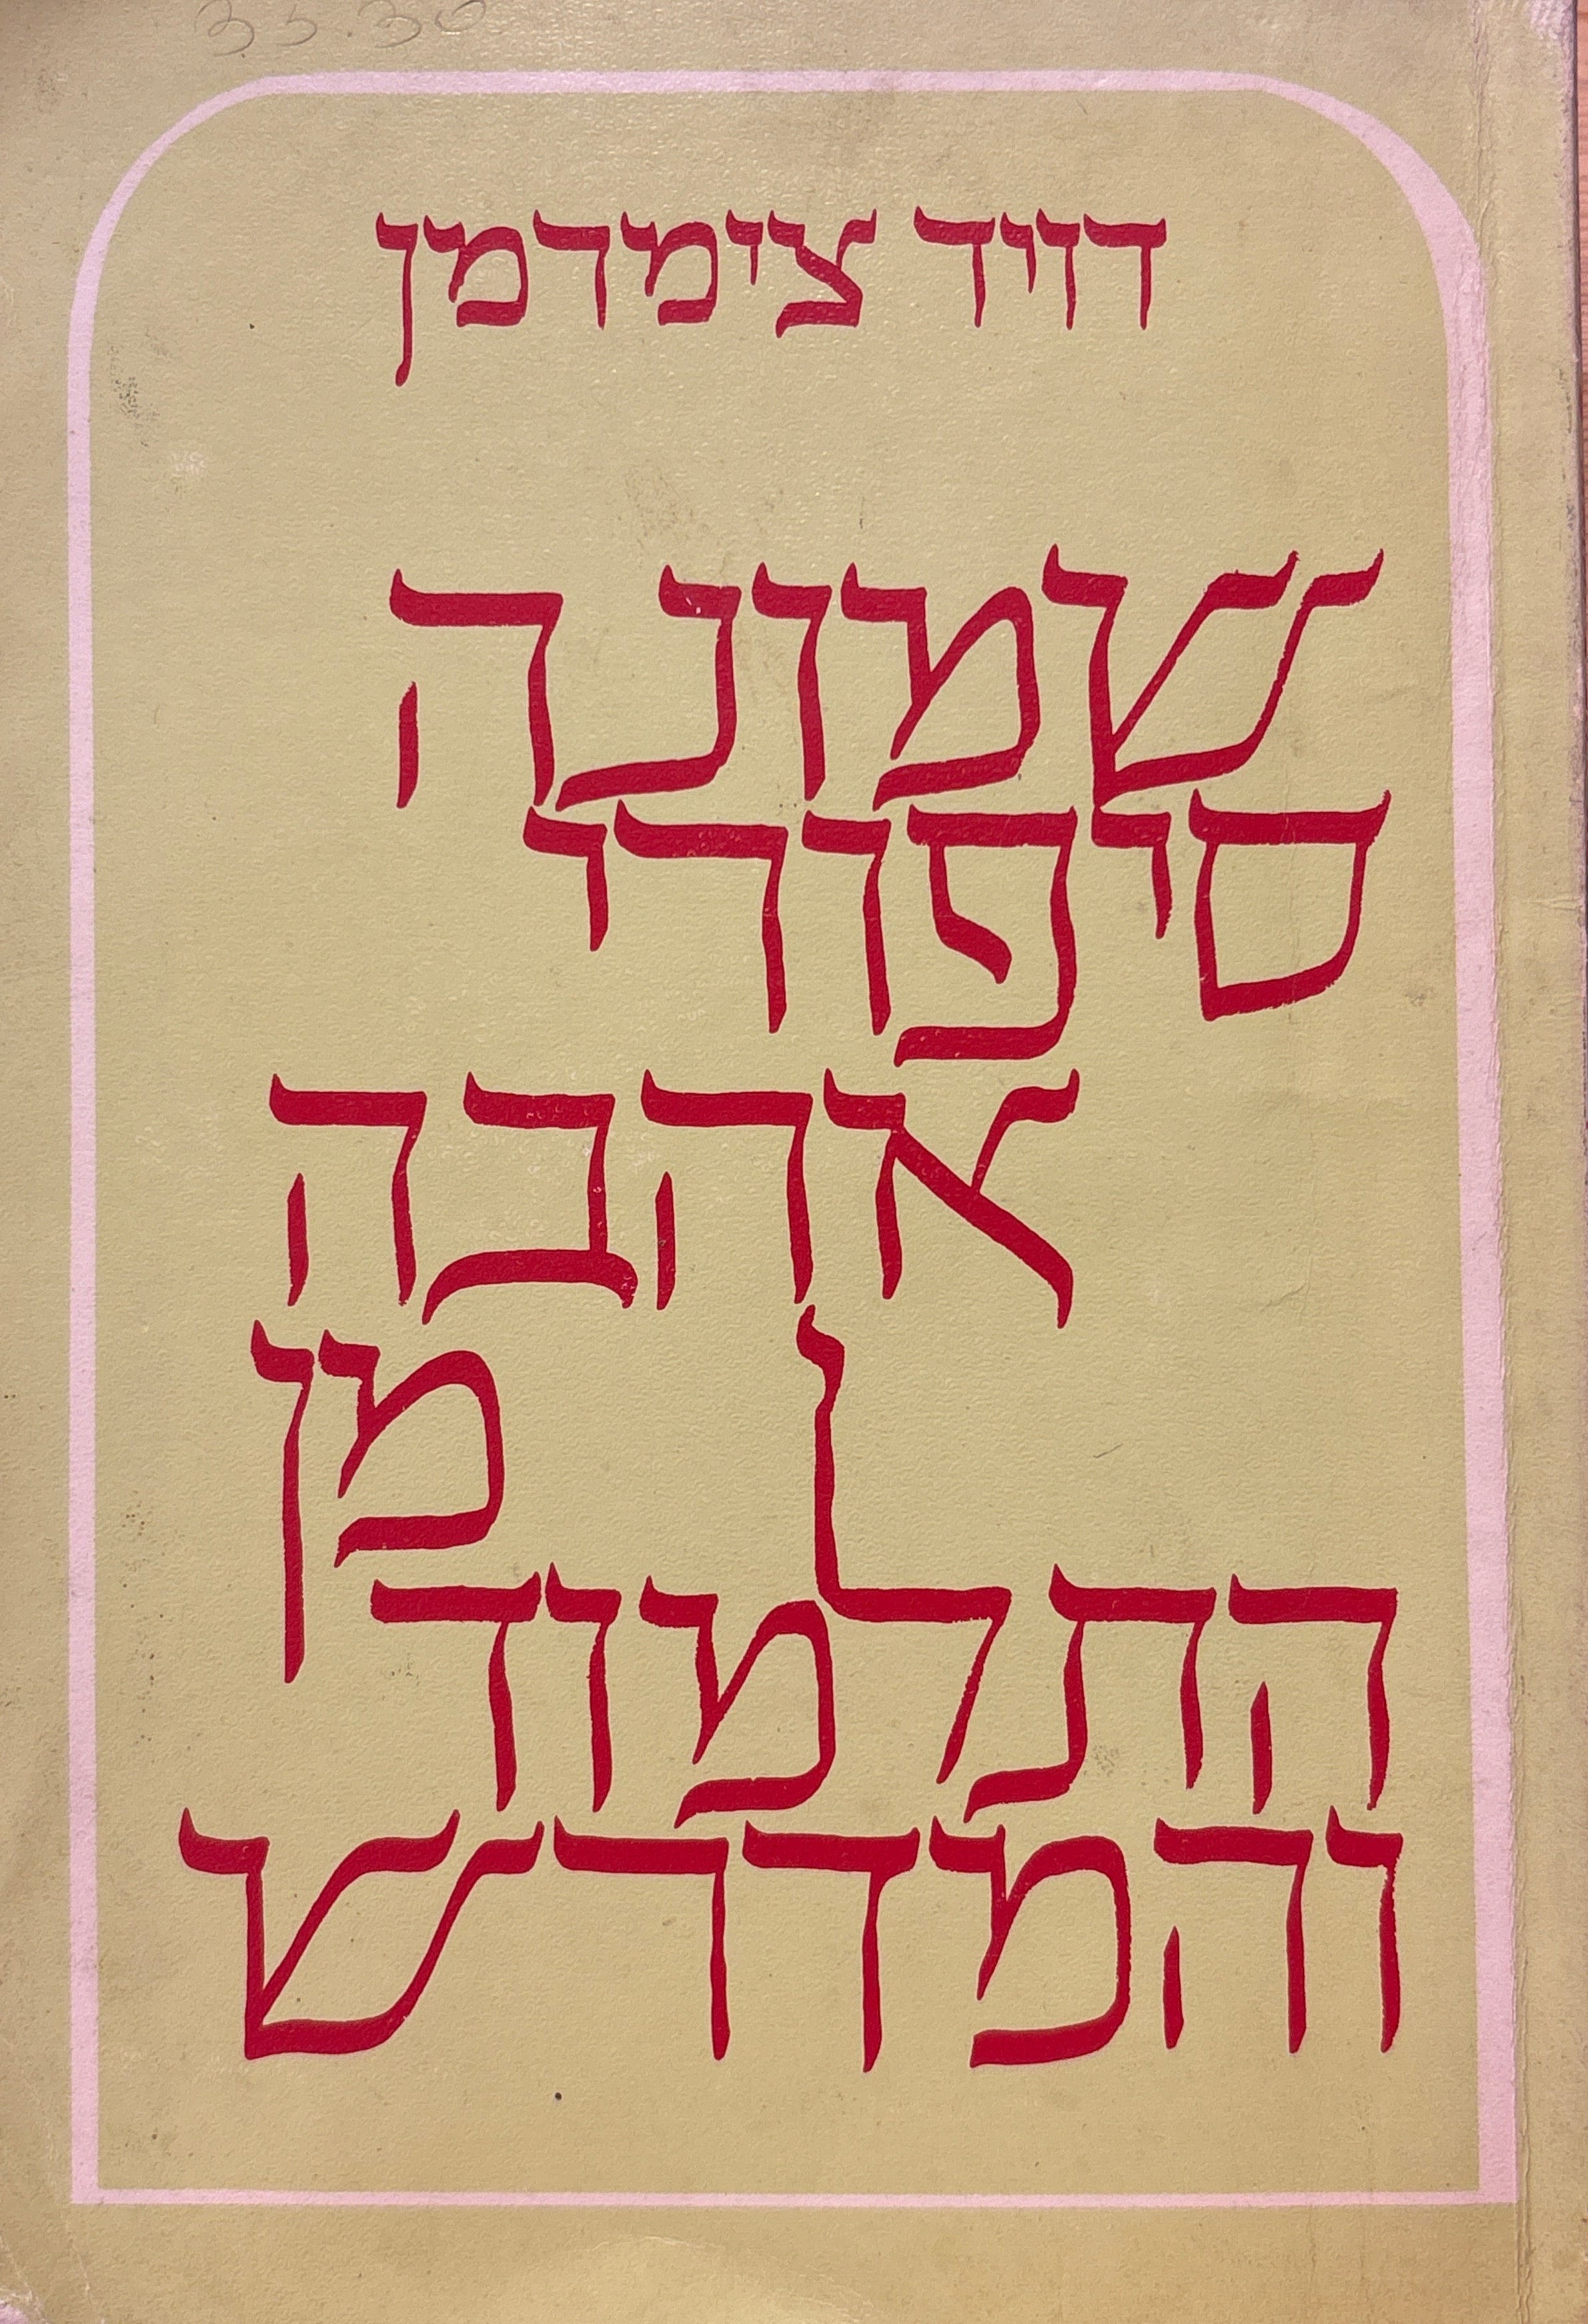 33.30
דויד צימרמן
שמונה
סיפורי
אהבה
מן
התלמוד
והמדרש